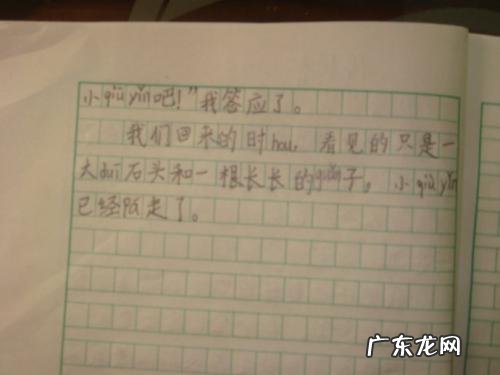 小qiū yǐn吧！”我答应了。
我们回来的时hou，看见的只是一
大duī石头和一根长长的 子。小qiū yǐn
已经 走了。
广东龙网